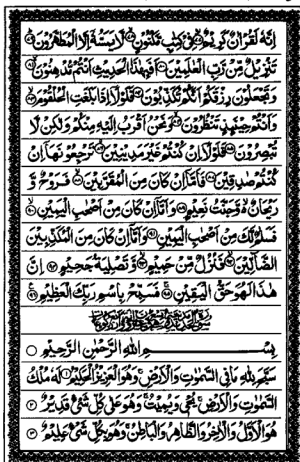 إِنَّهُ لَقُرْآنٌ كَرِيمٌ ۝ فِي كِتَابٍ مَكْنُونٍ ۝ لَا يَمَسُّهُ إِلَّا الْمُطَهَّرُونَ ۝
تَنْزِيلٌ مِنْ رَبِّ الْعَالَمِينَ ۝ أَفَبِهَذَا الْحَدِيثِ أَنْتُمْ مُدْهِنُونَ ۝
وَتَجْعَلُونَ رِزْقَكُمْ أَنَّكُمْ تُكَذِّبُونَ ۝ فَلَوْلَا إِذَا بَلَغَتِ الْحُلْقُومَ ۝
وَأَنْتُمْ حِينَئِذٍ تَنْظُرُونَ ۝ وَنَحْنُ أَقْرَبُ إِلَيْهِ مِنْكُمْ وَلَكِنْ لَا
تُبْصِرُونَ ۝ فَلَوْلَا إِنْ كُنْتُمْ غَيْرَ مَدِينِينَ ۝ تَرْجِعُونَهَا إِنْ
كُنْتُمْ صَادِقِينَ ۝ فَأَمَّا إِنْ كَانَ مِنَ الْمُقَرَّبِينَ ۝ فَرَوْحٌ وَ
رَيْحَانٌ وَجَنَّتُ نَعِيمٍ ۝ وَأَمَّا إِنْ كَانَ مِنْ أَصْحَابِ الْيَمِينِ ۝
فَسَلَامٌ لَكَ مِنْ أَصْحَابِ الْيَمِينِ ۝ وَأَمَّا إِنْ كَانَ مِنَ الْمُكَذِّبِينَ
الضَّالِّينَ ۝ فَنُزُلٌ مِنْ حَمِيمٍ ۝ وَتَصْلِيَةُ جَحِيمٍ ۝ إِنَّ
هَذَا لَهُوَ حَقُّ الْيَقِينِ ۝ فَسَبِّحْ بِاسْمِ رَبِّكَ الْعَظِيمِ ۝
بِسْمِ اللَّهِ الرَّحْمَنِ الرَّحِيمِ ۝
سَبَّحَ لِلَّهِ مَا فِي السَّمَاوَاتِ وَالْأَرْضِ وَهُوَ الْعَزِيزُ الْحَكِيمُ ۝ لَهُ مُلْكُ
السَّمَاوَاتِ وَالْأَرْضِ يُحْيِي وَيُمِيتُ وَهُوَ عَلَى كُلِّ شَيْءٍ قَدِيرٌ ۝
هُوَ الْأَوَّلُ وَالْآخِرُ وَالظَّاهِرُ وَالْبَاطِنُ وَهُوَ بِكُلِّ شَيْءٍ عَلِيمٌ ۝